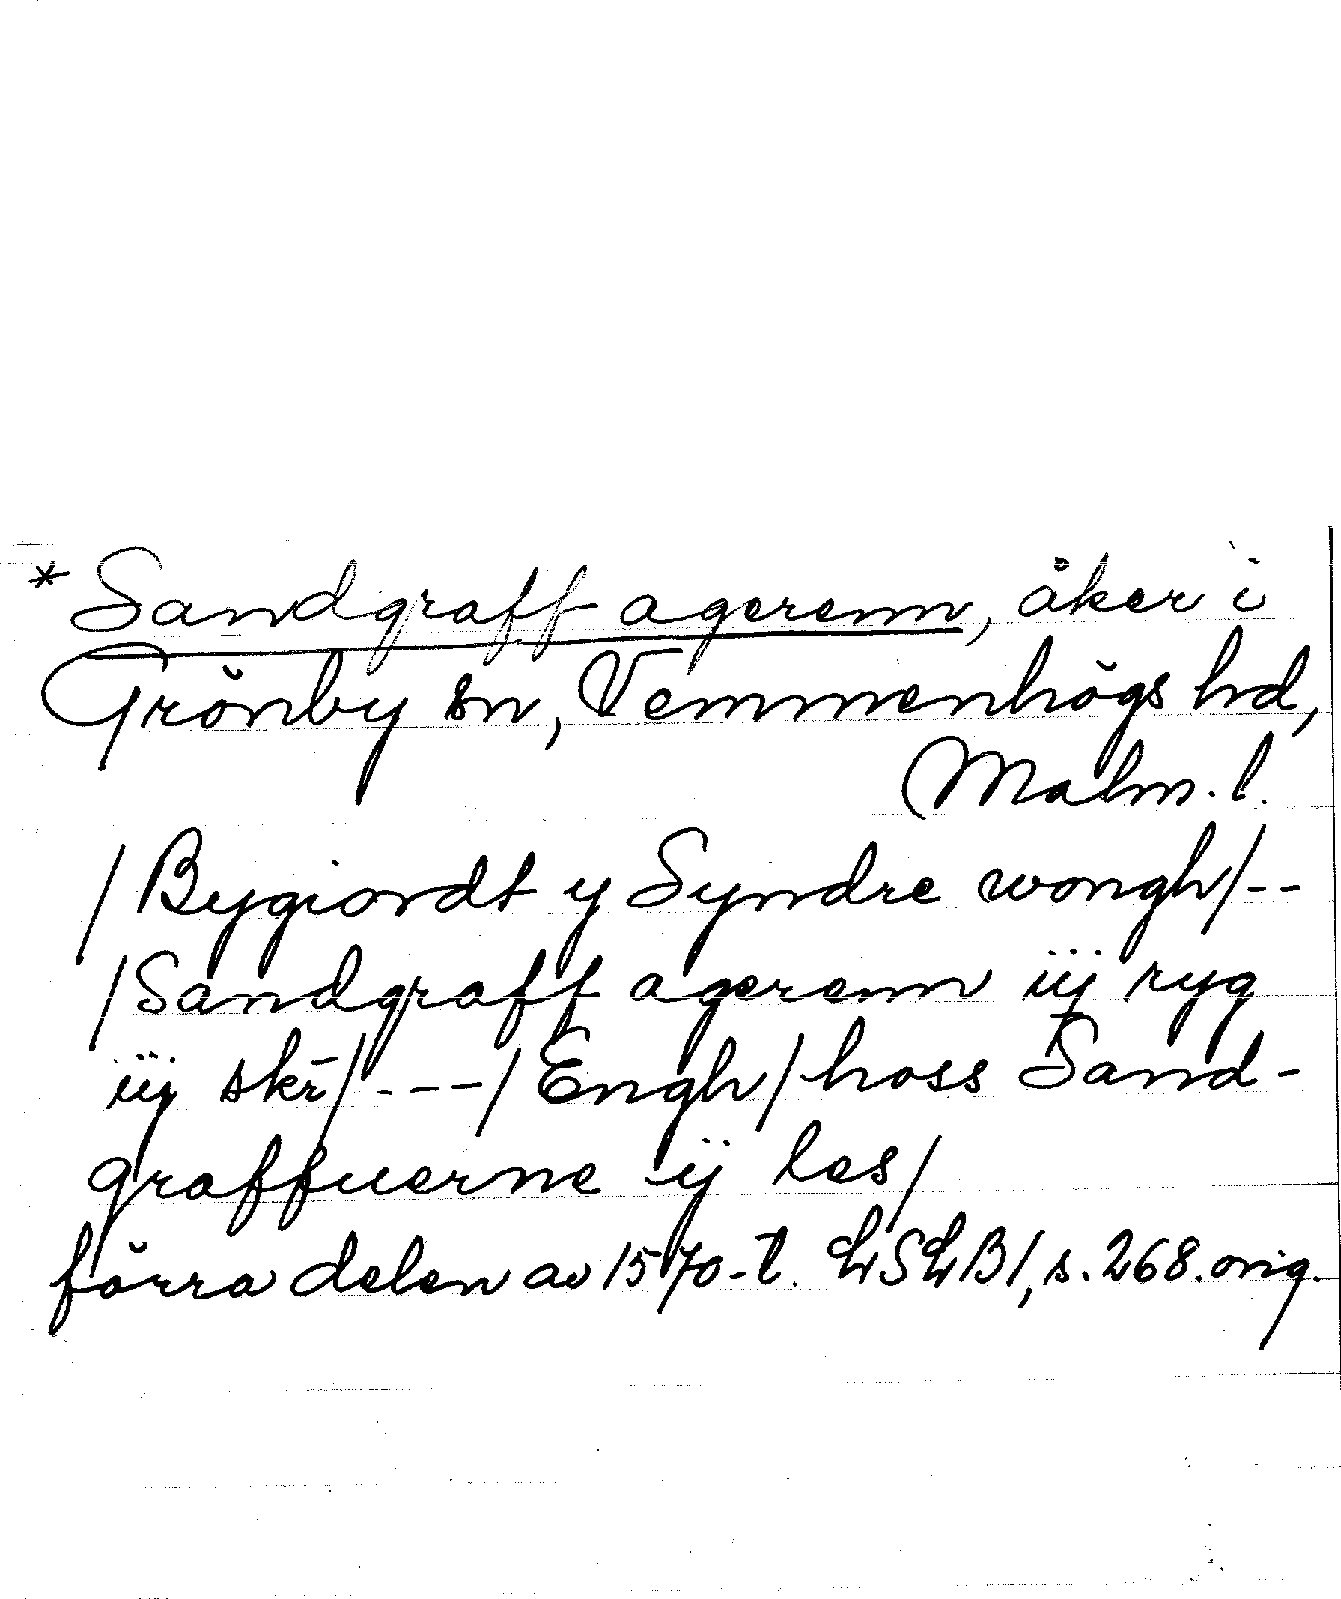 * Sandgraff agerenn, åker i
Grönby sn, Vemmenhögs hd,
Malm. l.
/Bygiordt y Syndre wongh/--
/Sandgraff agerenn iij ryg
iij skr̄/---/Engh/hoss Sand-
graffuerne ij les/
förra delen av 1570-t. LSLB1, s. 268. orig.